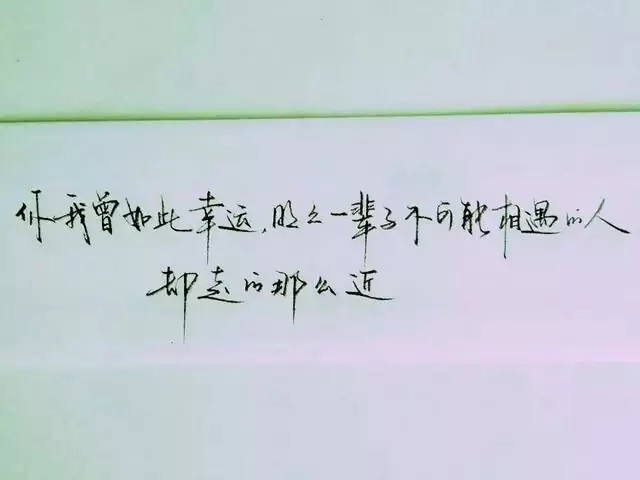 你我曾如此幸运,明明一辈子不可能相遇的人
却走的那么近